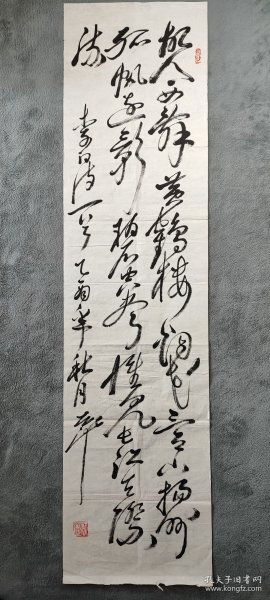 故人西辞黄鹤楼烟花三月下扬州
孤帆远影碧空尽惟见长江天际
流
李白诗一首乙酉年秋月
孔夫子旧书网